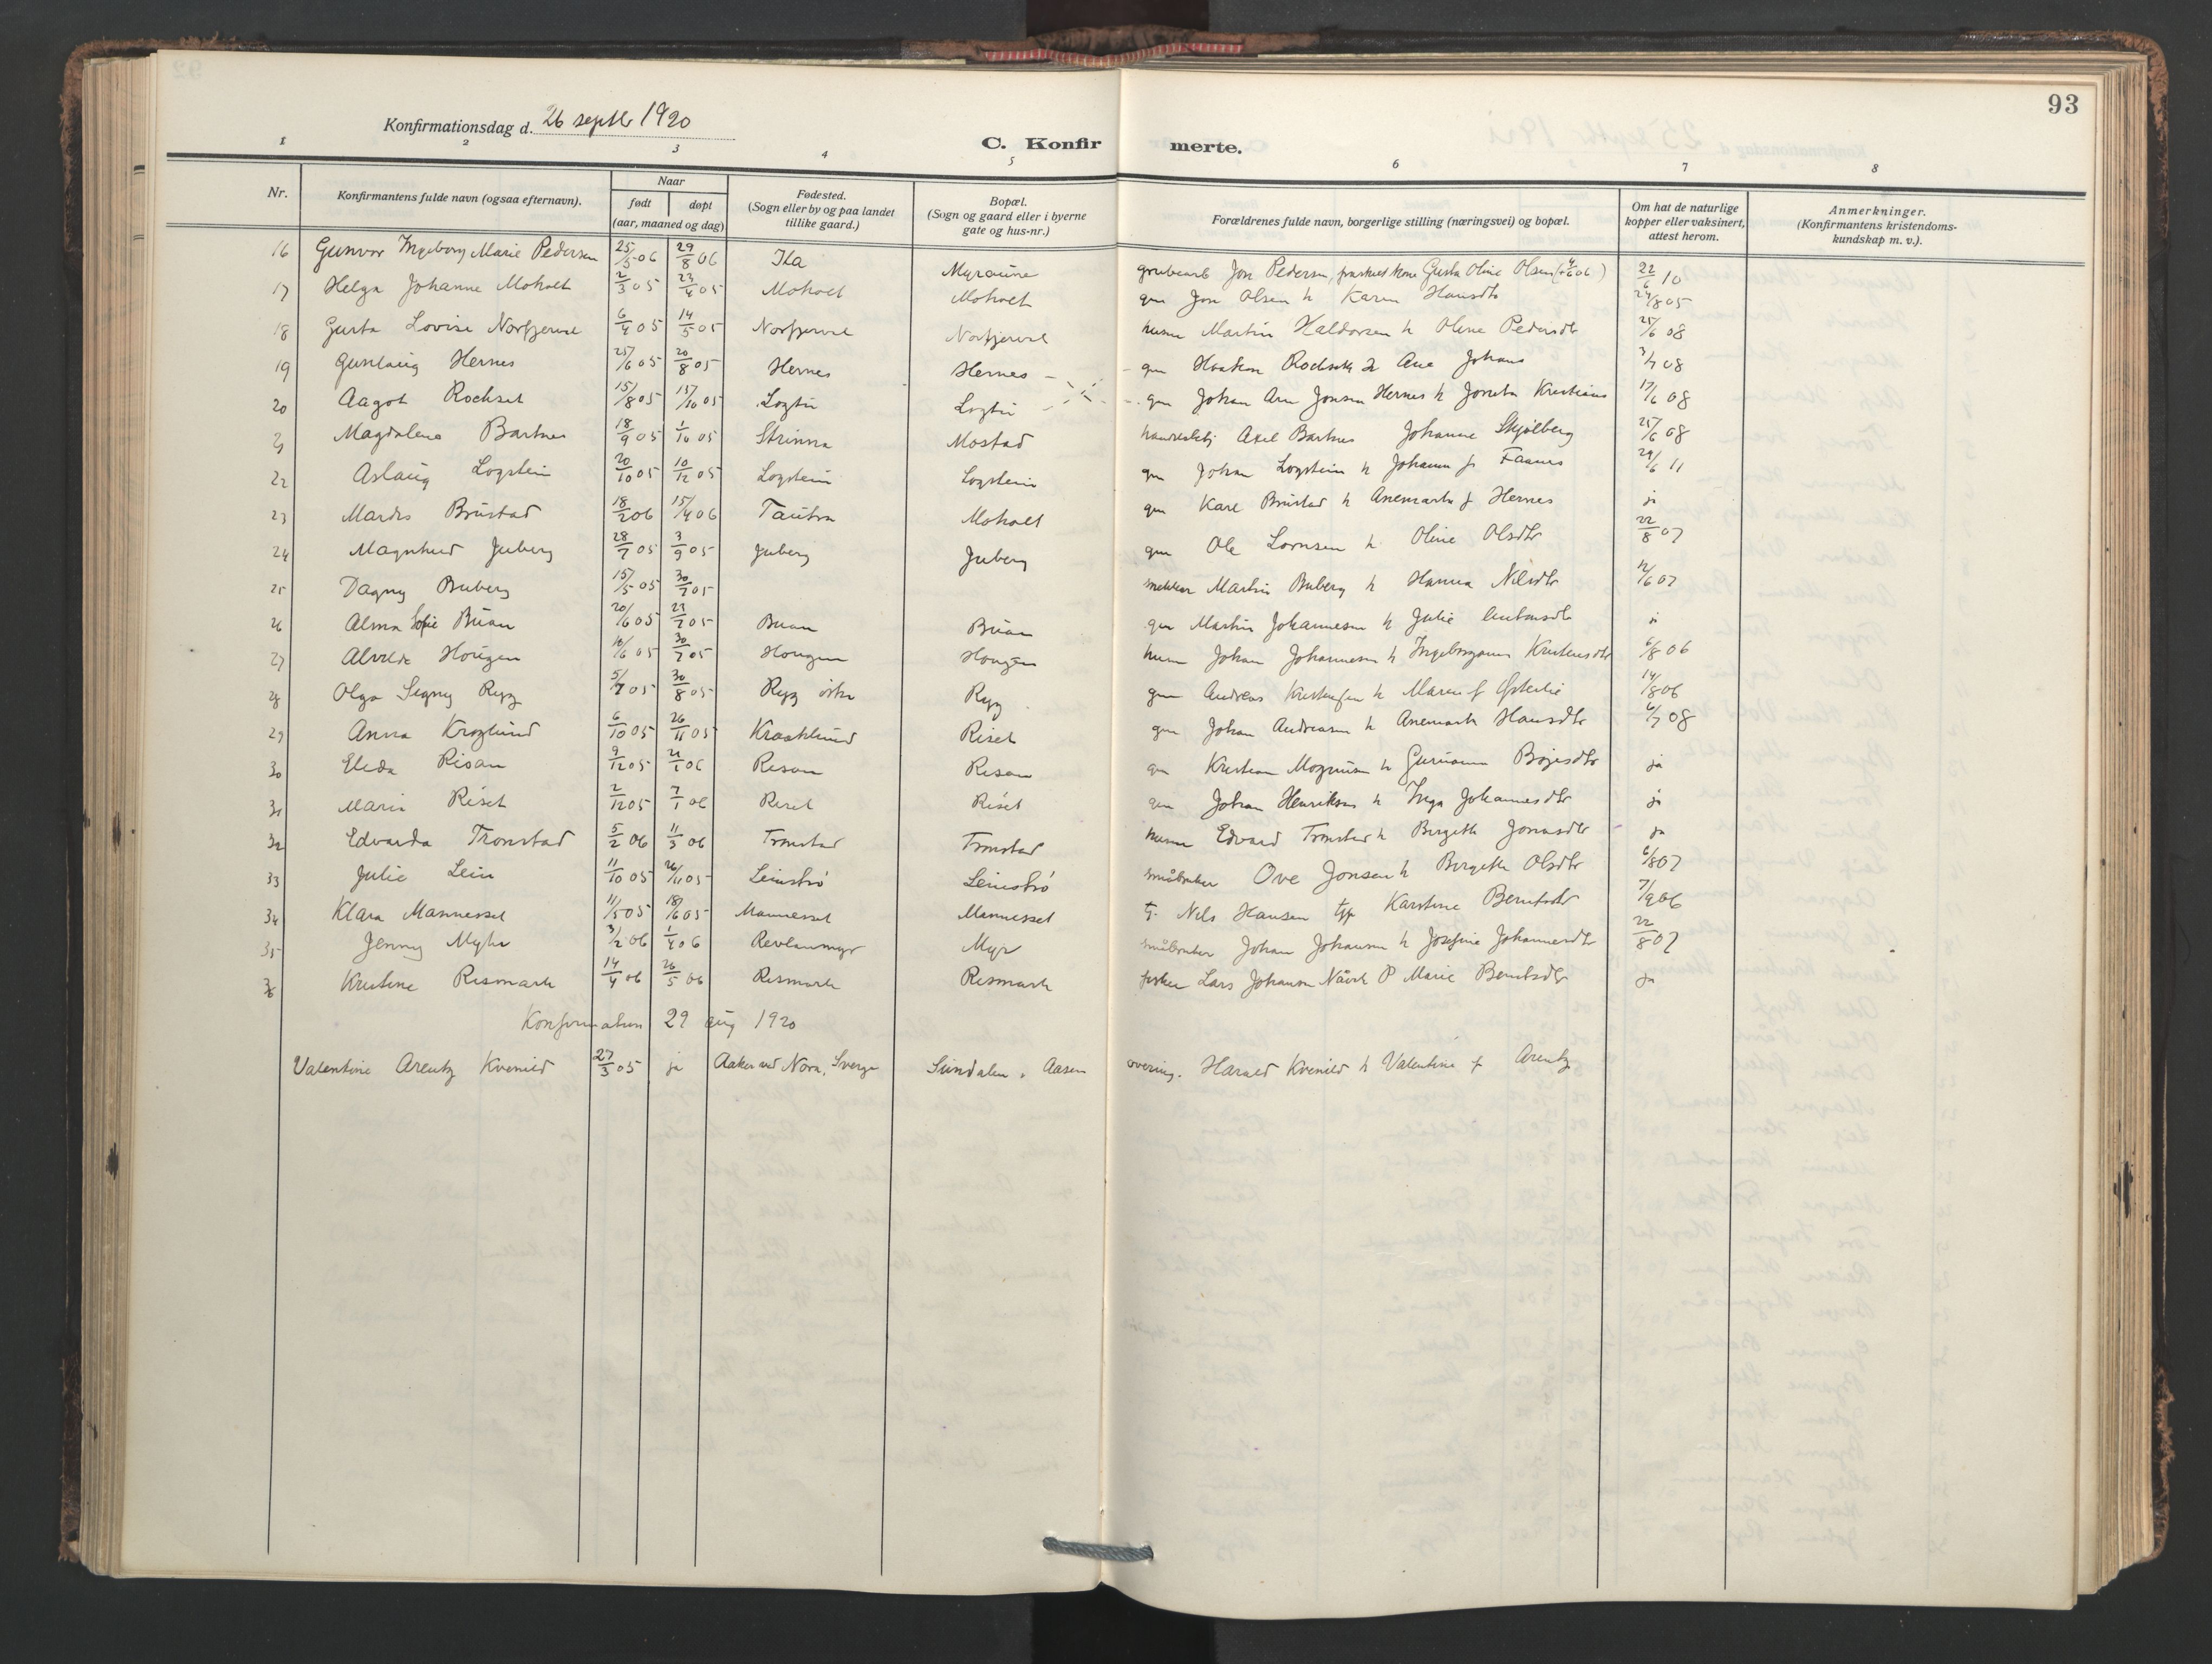 93
Konfirmationsdag d. 26 septbr 1920
C. Konfirmerte.
1 2 3 4 5 6 7 8
Nr. Konfirmantens fulde navn (ogsaa efternavn). Naar født døpt (aar, maaned og dag) Fødested. (Sogn eller by og paa landet tillike gaard.) Bopæl. (Sogn og gaard eller i byerne gate og hus-nr.) Forældrenes fulde navn, borgerlige stilling (næringsvei) og bopæl. Om hat de naturlige kopper eller vaksinert, attest herom. Anmerkninger. (Konfirmantens kristendoms-kundskap m. v.).
16 Gunvor Ingeborg Marie Pedersen 25/5 06 29/8 06 Ila Myraune grubearb Jon Pedersen, fraskilt kone Gusta Oline Olsen 22/6 10
17 Helga Johanne Moholt 2/3 05 23/4 05 Moholt Moholt gm Jon Olsen h Karen Hansdtr 24/8 05
18 Gusta Lovise Norfjerve 6/4 05 14/5 05 Martin Haldorsen h Oline Pedersdtr 25/6 08
19 Gunlaug Hernes 25/6 05 20/8 05 Hernes Hernes gm Haakon 3/7 08
20 Aagot Rochset 15/8 05 15/10 05 gm Johan Arn Jonsen Hernes h 17/6 08
21 Magdalena Bartnes 18/9 05 1/10 05 Strinna Mostad Axel Bartnes Johanne Skjølberg 25/6 08
22 Aslaug Logstein 20/10 05 10/12 05 Logstein Logstein gm Johan Logstein h Johanna f Faanes 29/6 11
23 Brustad 18/2 06 15/4 06 Tautra Moholt gm Karl Brustad h Anemarta f Hernes ja
24 Magnhild Juberg 28/7 05 3/9 05 Juberg Juberg gm Ole Lornsen h Oline Olsdtr 22/8 07
25 Dagny Buberg 15/5 05 30/7 05 Martin Buberg h Hanna Nilsdtr 12/6 07
26 Alma Sofie Buan 20/6 05 23/7 05 Buan Buan gm Martin Johannesen h Julie ja
27 Alvilde Hougen 10/6 05 30/7 05 Hougen Hougen Johan Johannesen h Ingeborganna 6/8 06
28 Olga Signy Rygg 5/7 05 30/8 05 Rygg østre Rygg gm Andreas Kristensen h Maren f Østerlie 14/8 06
29 Anna Kroglund 6/10 05 26/11 05 Kraaklund Riset gm Johan Andreasen h Anemarta Hansdtr 6/7 08
30 Eleda Risan 9/12 05 21/1 06 Risan Risan gm Kristian Magnusen h ja
31 Marie Riset 2/12 05 7/1 06 Riset Riset gm Johan Henriksen h Inga Johannesdtr ja
32 Edvarda Tronstad 5/2 06 11/3 06 Tronstad Tronstad Edvard Tronstad h Bergitte Jonasdtr ja
33 Julie Lein 11/10 05 26/11 05 Leinstrø Leinstrø småbruker Ove Jonsen h Bergitte Olsdtr 6/8 07
34 Klara Mannesset 11/5 05 18/6 05 Mannesset Mannesset Nils Hansen Karstine Berntsdtr 7/9 06
35 Jenny Myhr 3/2 06 1/4 06 Revlanmyr Myr småbruker Johan Johansen h Josefine Johannesdtr 22/8 07
36 Kristine Rismark 14/4 06 26/5 06 Rismark Rismark fisker Lars Johansen Marie Berntsdtr ja
Konfirmation 29 aug 1920
Valentine Arentz Kvenild 27/3 05 ja Aaker ved Nora, Sverge Sundalen, Aasen Harald Kvenild h Valentine f Arentz